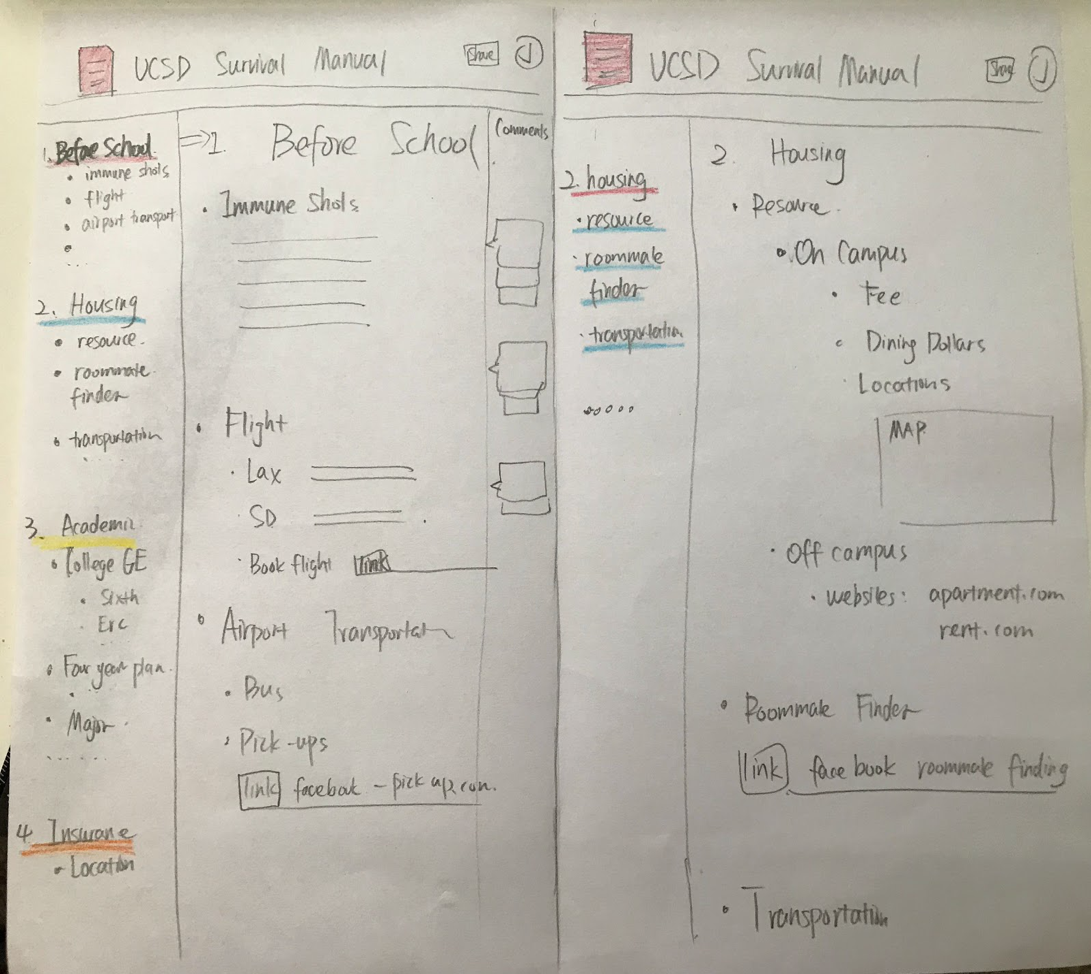 UCSD Survival Manual
Share
1. Before School
• immune shots
• flight
• airport transport
•
...
2. Housing
• resource.
• roommate
finder
• transportation
....
3. Academic
• College GE
• Sixth
• Erc
• Four year plan.
• Major.
......
4 Insurane
• Location
⇒1. Before School
• Immune Shots
• Flight
• Lax
• SD
• Book flight link
• Airport Transportatn
• Bus
• Pick-ups
link facebook - pick up.com.
Comments
UCSD Survival Manual
Share
2. housing
• resource
• roommate
finder
• transportation
.....
2. Housing
• Resource.
• On Campus
• Fee
• Dining Dollars
• Locations
MAP
• Off campus
• websites: apartment.com
rent.com
• Roommate Finder
link face book roommate finding
• Transportation